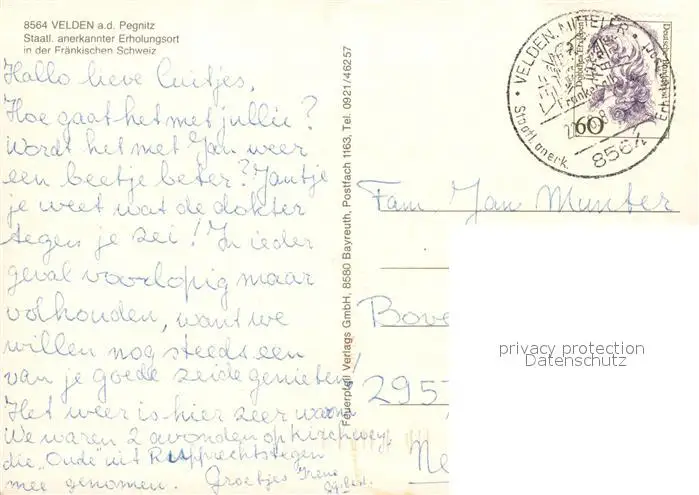 8564 VELDEN a.d. Pegnitz
Staatl. anerkannter Erholungsort
in der Fränkischen Schweiz
Hallo lieve luitjes,
Hoe gaat het met jullie?
Wordt het met Jan weer
een beetje beter? Jantje
je weet wat de dokter
tegen je zei! In ieder
geval voorlopig maar
volhouden, want we
willen nog steeds een
van je goede zeide genieten!
Het weer is hier zeer warm
We waren 2 avonden op Kirchweyh
die "Oude" uit Rupprechtstegen
mee genomen. Groetjes Irene
Feuerpfeil Verlags GmbH, 8580 Bayreuth, Postfach 1163, Tel. 0921/46257
VELDEN, MITTELFR.
Staatl. anerk. Erh
8564
Deutsche Bundespost
60
Fam Jan Munter
Bove
295
Ne
privacy protection
Datenschutz